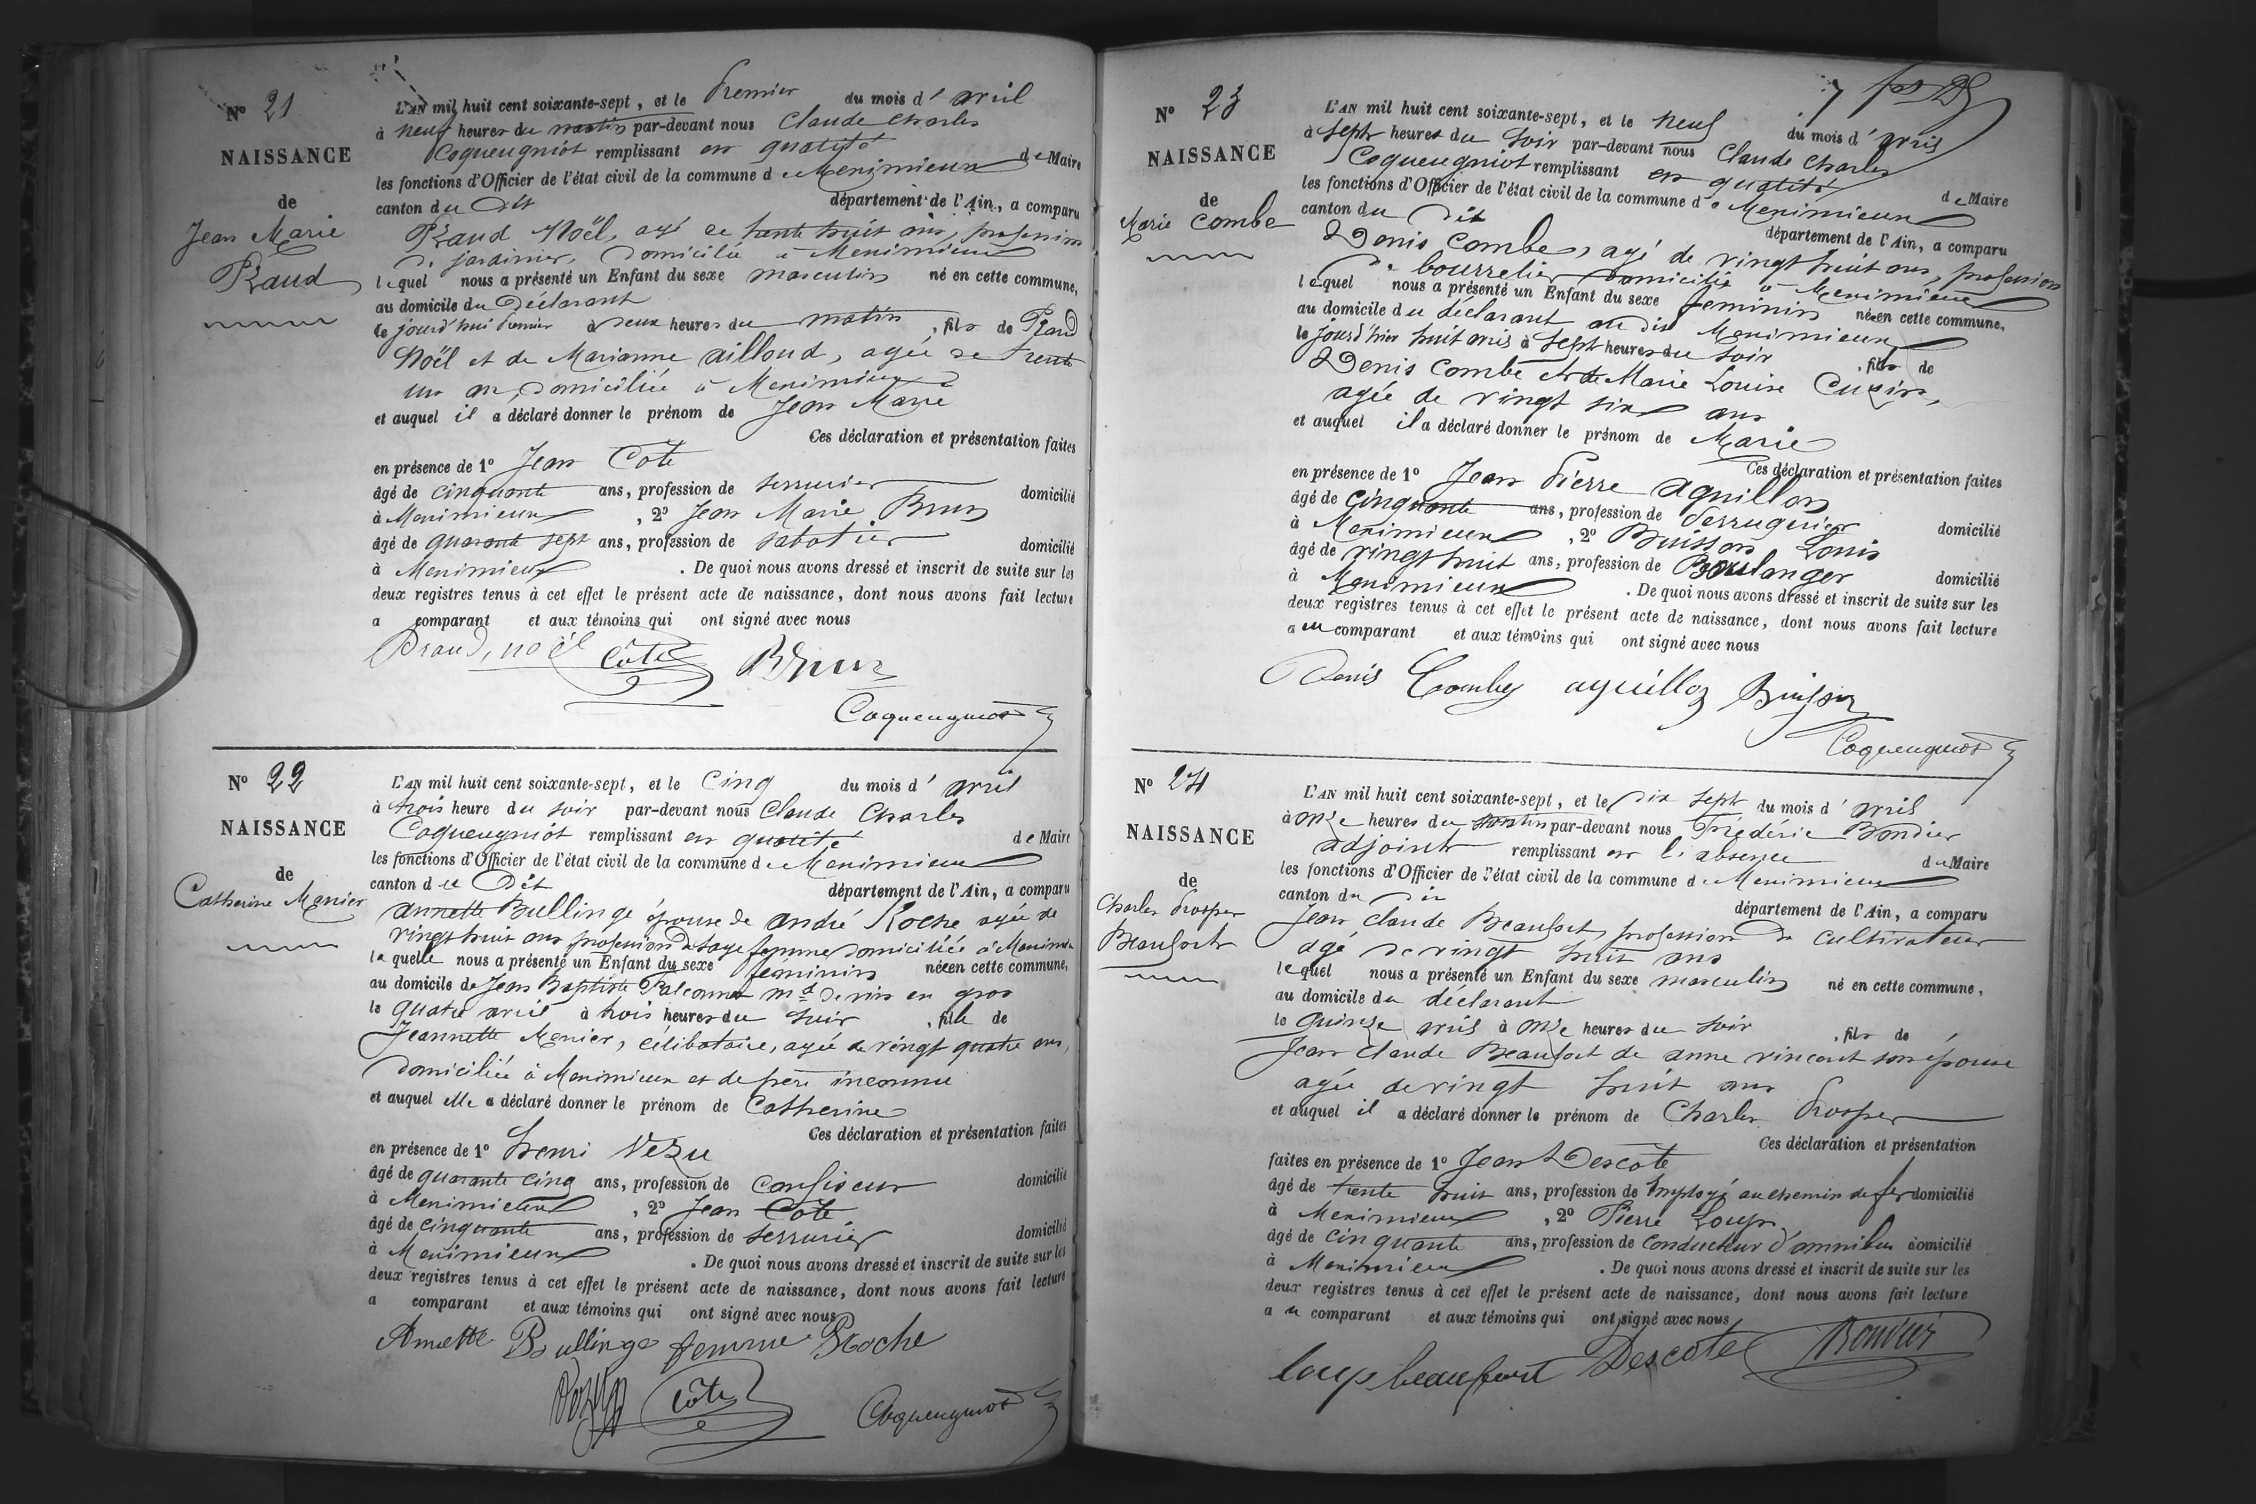 N° 21
NAISSANCE
de
Jean Marie
Praud
L'AN mil huit cent soixante-sept, et le Premier du mois d'avril
à neuf heures du matin par-devant nous Claude Charles
Coqueugniot remplissant en qualité de Maire
les fonctions d'Officier de l'état civil de la commune de Meximieux
canton du dit département de l'Ain, a comparu
Praud Noël, agé de trente huit ans, profession
de jardinier, domicilié à Meximieux
lequel nous a présenté un Enfant du sexe masculin né en cette commune,
au domicile du Déclarant
le jourd'hui Premier à deux heures du matin, fils de Praud
Noël et de Marianne ailloud, agée de trente
un an, domiciliée à Meximieux
et auquel il a déclaré donner le prénom de Jean Marie
Ces déclaration et présentation faites
en présence de 1° Jean Cote
âgé de cinquante ans, profession de serrurier domicilié
à Meximieux, 2° Jean Marie Brun
âgé de quarante sept ans, profession de sabotier domicilié
à Meximieux. De quoi nous avons dressé et inscrit de suite sur les
deux registres tenus à cet effet le présent acte de naissance, dont nous avons fait lecture
a comparant et aux témoins qui ont signé avec nous
Praud, noël Côte Brun
Coqueugniot
N° 22
NAISSANCE
de
Catherine Menier
L'AN mil huit cent soixante-sept, et le Cinq du mois d'avril
à trois heure du soir par-devant nous Claude Charles
Coqueugniot remplissant en qualité de Maire
les fonctions d'Officier de l'état civil de la commune de Meximieux
canton du Dit département de l'Ain, a comparu
annette Bullinge épouse de andré Roche agée de
vingt huit ans profession de sage femme domiciliée à Meximieux
laquelle nous a présenté un Enfant du sexe féminin née en cette commune,
au domicile de Jean Baptiste Falconnet md de vin en gros
le quatre avril à trois heures du soir, fille de
Jeannette Menier, célibataire, agée de vingt quatre ans,
domiciliée à Meximieux et de père inconnu
et auquel elle a déclaré donner le prénom de Catherine
Ces déclaration et présentation faites
en présence de 1° henri Vezu
âgé de quarante cinq ans, profession de confiseur domicilié
à Meximieux, 2° Jean Côte
âgé de cinquante ans, profession de serrurier domicilié
à Meximieux. De quoi nous avons dressé et inscrit de suite sur les
deux registres tenus à cet effet le présent acte de naissance, dont nous avons fait lecture
a comparant et aux témoins qui ont signé avec nous
Annette Bullinge femme Roche
Côte Coqueugniot
N° 23
NAISSANCE
de
Marie Combe
L'AN mil huit cent soixante-sept, et le neuf du mois d'avril
à sept heures du soir par-devant nous Claude Charles
Coqueugniot remplissant en qualité de Maire
les fonctions d'Officier de l'état civil de la commune de Meximieux
canton du dit département de l'Ain, a comparu
Denis Combe, agé de vingt huit ans, profession
de bourrelier domicilié à Meximieux
lequel nous a présenté un Enfant du sexe feminin née en cette commune,
au domicile du déclarant au dit Meximieux
le jourd'hier huit avril à sept heures du soir, fille de
Denis Combe et de Marie Louise Cuzin,
agée de vingt six ans
et auquel il a déclaré donner le prénom de Marie
Ces déclaration et présentation faites
en présence de 1° Jean Pierre aguillon
âgé de cinquante ans, profession de ferrugerier domicilié
à Meximieux, 2° Buisson Louis
âgé de vingt huit ans, profession de Boulanger domicilié
à Meximieux. De quoi nous avons dressé et inscrit de suite sur les
deux registres tenus à cet effet le présent acte de naissance, dont nous avons fait lecture
au comparant et aux témoins qui ont signé avec nous
Denis Combe aguillon Buisson
Coqueugniot
N° 24
NAISSANCE
de
Charles Prosper
Beaufort
L'AN mil huit cent soixante-sept, et le dix sept du mois d'avril
à onze heures du matin par-devant nous Frédéric Bondier
adjoint remplissant en l'absence du Maire
les fonctions d'Officier de l'état civil de la commune de Meximieux
canton du dit département de l'Ain, a comparu
Jean Claude Beaufort, profession de cultivateur
agé de vingt huit ans
lequel nous a présenté un Enfant du sexe masculin né en cette commune,
au domicile du déclarant
le quinze avril à onze heures du soir, fils de
Jean Claude Beaufort de anne vincent son épouse
agée de vingt huit ans
et auquel il a déclaré donner le prénom de Charles Prosper
Ces déclaration et présentation
faites en présence de 1° Jean Descôte
âgé de trente huit ans, profession de Employé au chemin de fer domicilié
à Meximieux, 2° Pierre Loup
âgé de cinquante ans, profession de conducteur d'omnibus domicilié
à Meximieux. De quoi nous avons dressé et inscrit de suite sur les
deux registres tenus à cet effet le présent acte de naissance, dont nous avons fait lecture
au comparant et aux témoins qui ont signé avec nous
loup beaufort Descote Bondier